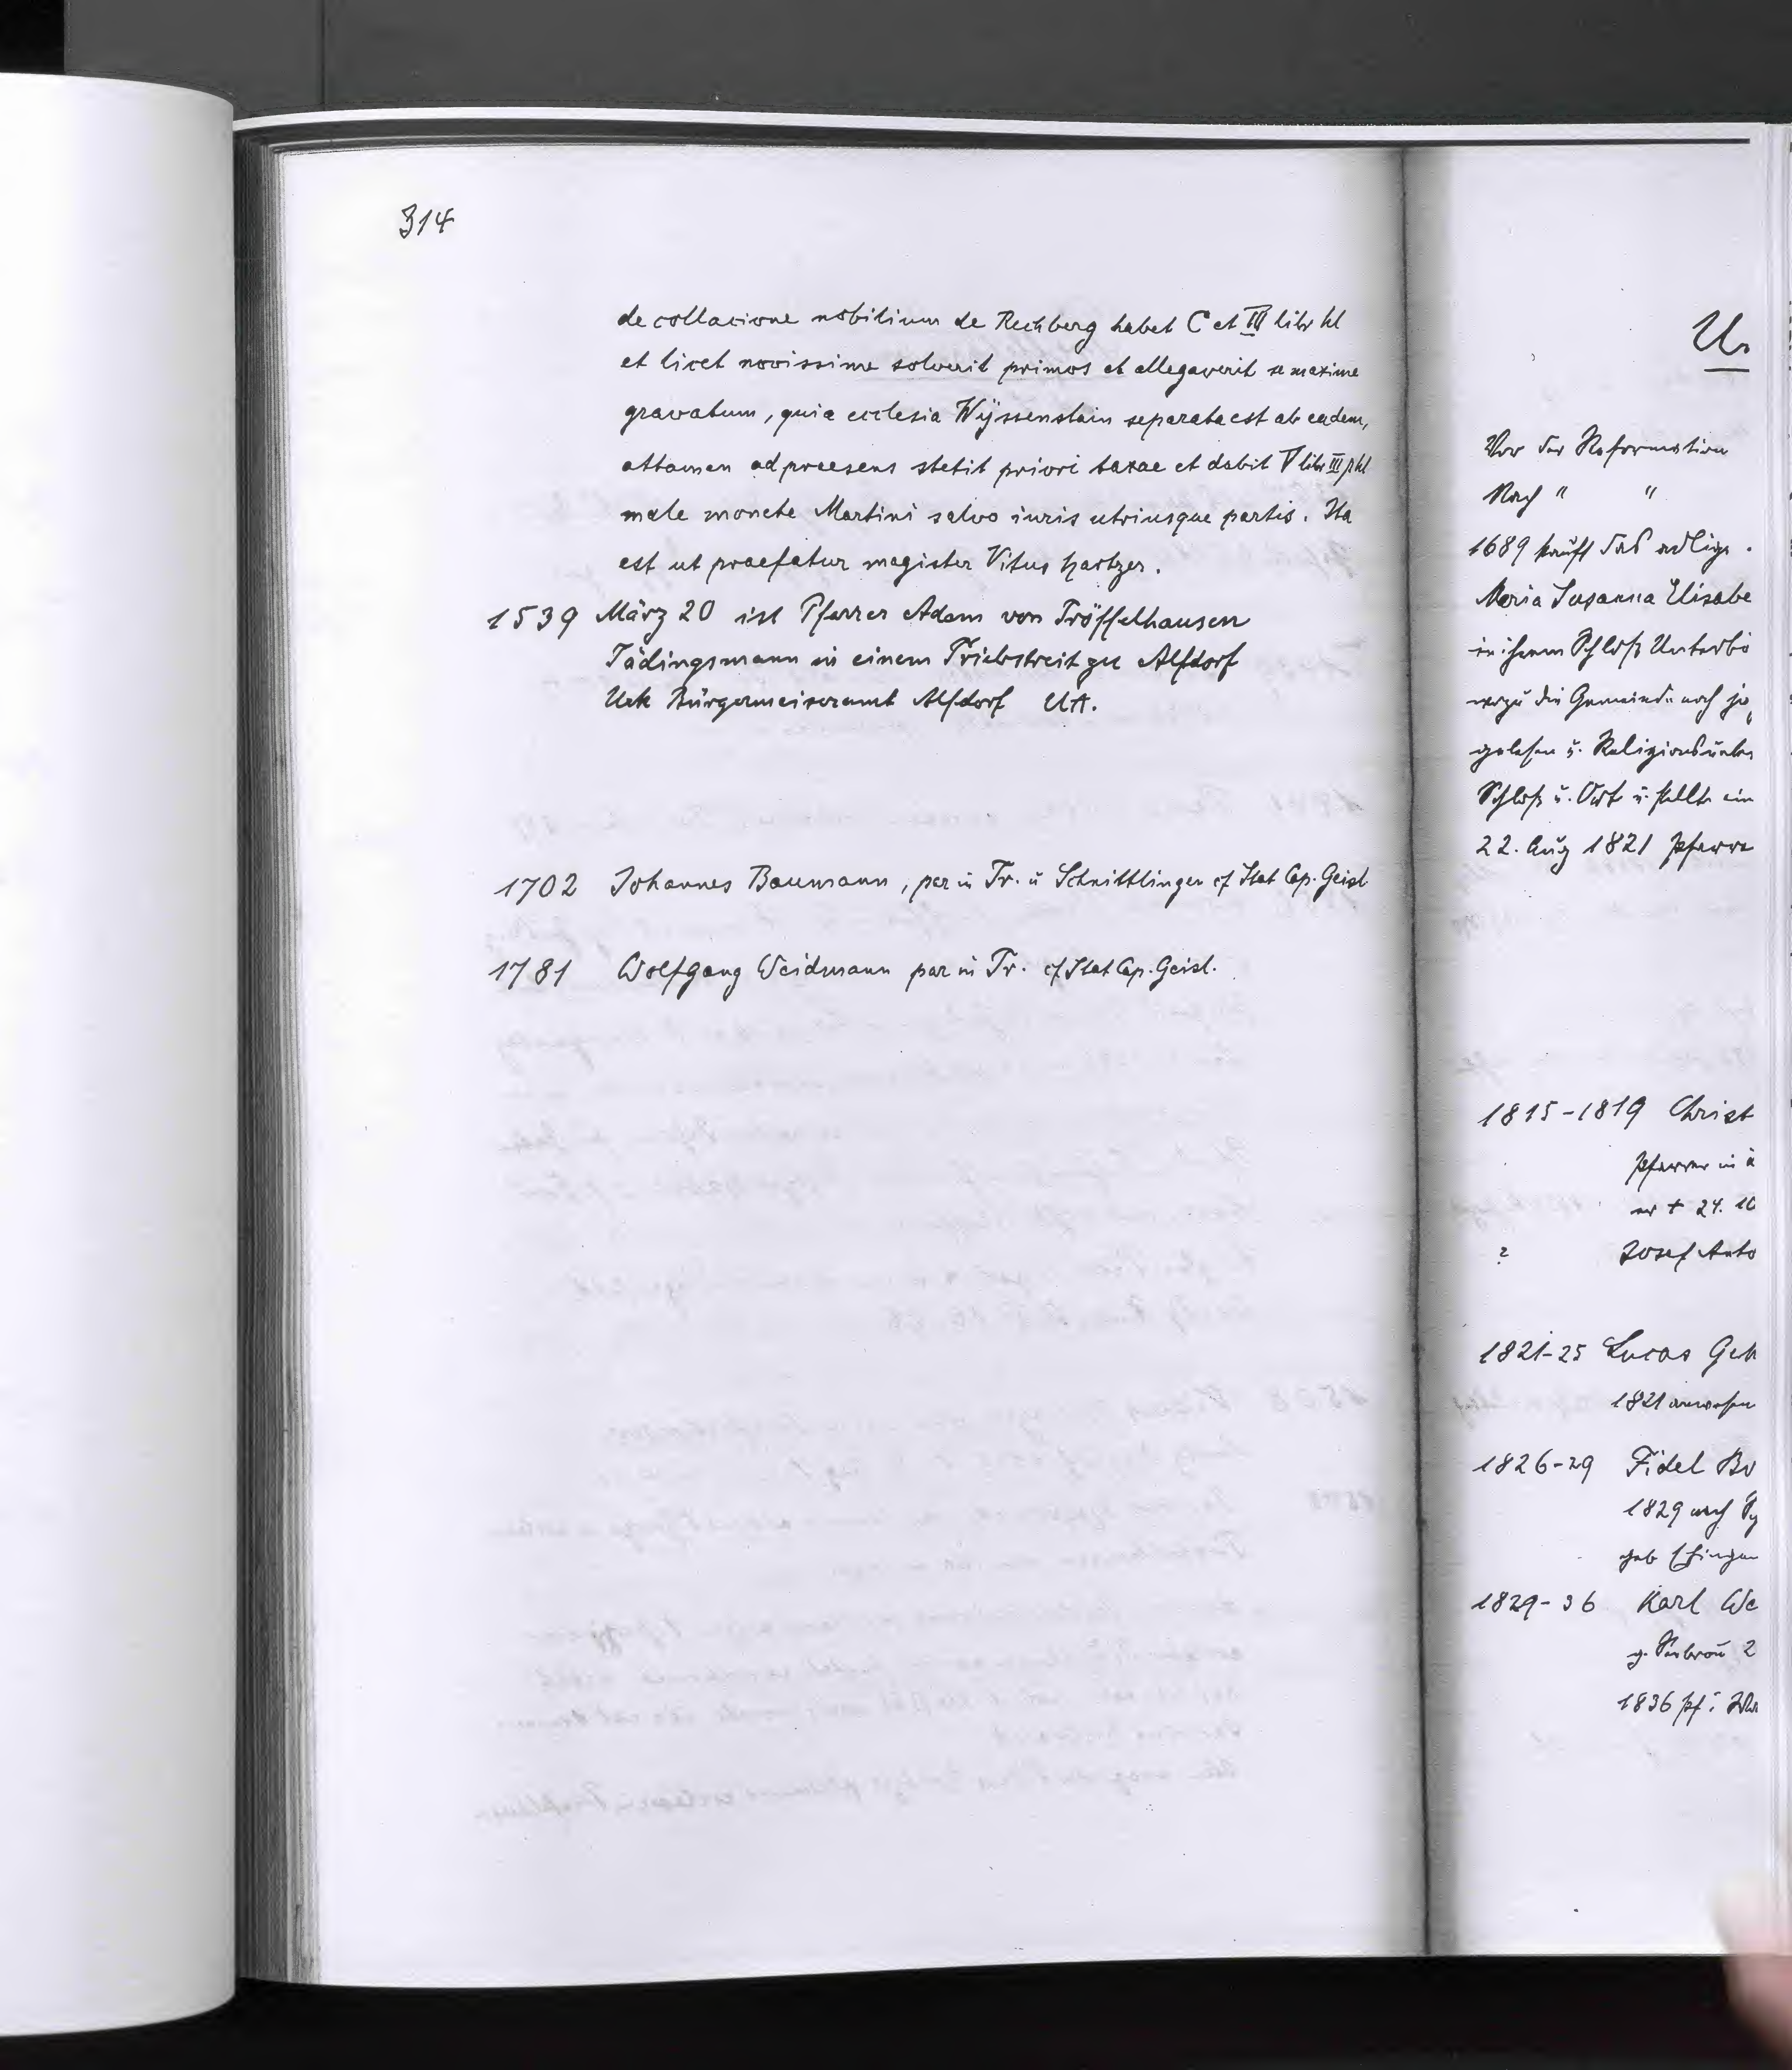 314
de collacione nobilium de Rechberg habet C et III libr hl
et licet novissime solverit primos et allegaverit se maxime
gravatum, quia ecclesia Wÿssenstain separata est ab eadem,
attamen ad praesens stetit priori taxae et dabit V libr III ß hl
male monete Martini salvo iuris utriusque partis. Ita
est ut praefatur magister Vitus Hartzer.
1539 März 20 ist Pfarrer Adam von Tröffelhausen
Tädingsmann in einem Triebstreit zu Alfdorf
Urk Bürgermeisteramt Alfdorf UA.
1702 Johannes Baumann, par in Tr. u Schnittlingen cf Stat Cap. Geisl.
1781 Wolfgang Weidmann par in Tr. cf Stat Cap. Geisl.
Un
Vor der Reformation
Nach " "
1689 kauft das adlige
Maria Susanna Elisabe
in ihrem Schloß Unterbö
wozu die Gemeinde noch je
gelesen u. Religionsunter
Schloß u. Ort u. stellte ein
22. Aug 1821 Pfarre
1815-1819 Christ
Pfarrer in
er + 24. 10
? Josef Anto
1821-25 Lucas Geh
1821
1826-29 Fidel Bu
1829 nach
geb Ehingen
1829-36 Karl We
g. 2
1836 Pf.